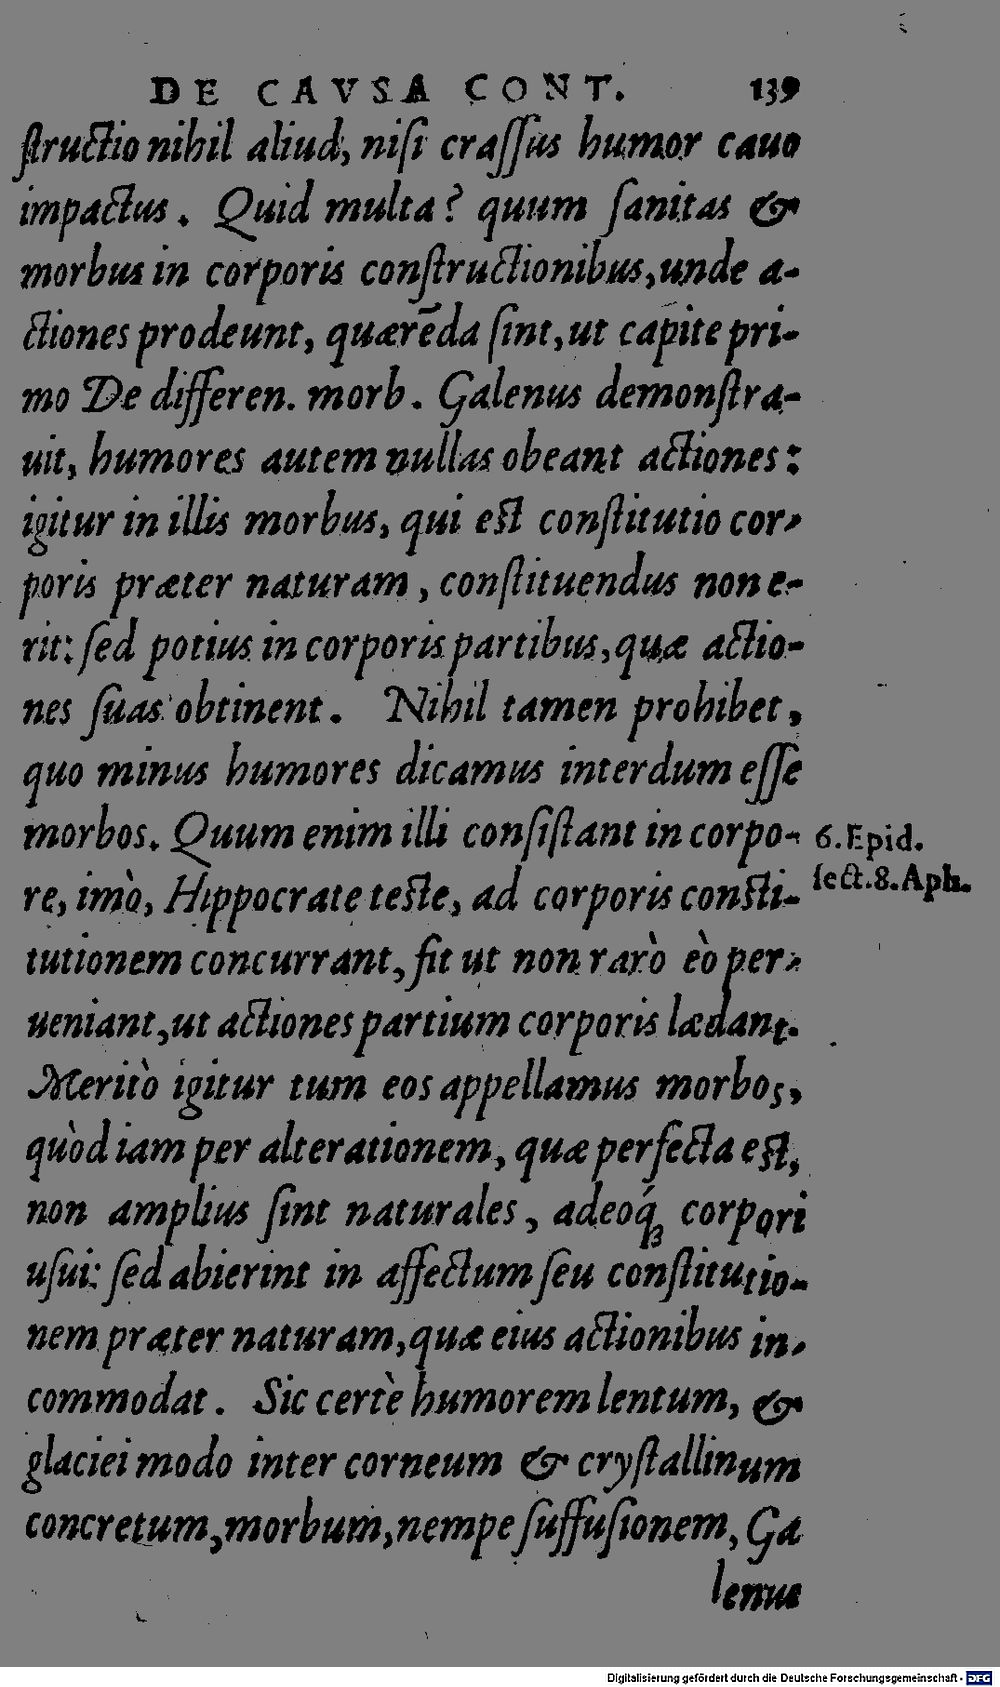 DE CAVSA CONT. 139
structio nihil aliud, nisi crassus humor cauo
impactus. Quid multa? quum sanitas &
morbus in corporis constructionibus, unde a-
ctiones prodeunt, quærēda sint, ut capite pri-
mo De differen. morb. Galenus demonstra-
uit, humores autem nullas obeant actiones:
igitur in illis morbus, qui est constitutio cor-
poris præter naturam, constituendus non e-
rit: sed potius in corporis partibus, quæ actio-
nes suas obtinent. Nihil tamen prohibet,
quo minus humores dicamus interdum esse
morbos. Quum enim illi consistant in corpo-
6. Epid.
re, imò, Hippocrate teste, ad corporis consti-
sect. 8. Aph.
tutionem concurrant, fit ut non rarò eò per-
ueniant, ut actiones partium corporis lædant.
Meritò igitur tum eos appellamus morbos,
quòd iam per alterationem, quæ perfecta est,
non amplius sint naturales, adeoq́ꝫ corpori
usui: sed abierint in affectum seu constitutio-
nem præter naturam, quæ eius actionibus in-
commodat. Sic certè humorem lentum, &
glaciei modo inter corneum & crystallinum
concretum, morbum, nempe suffusionem, Ga
lenus
Digitalisierung gefördert durch die Deutsche Forschungsgemeinschaft - DFG